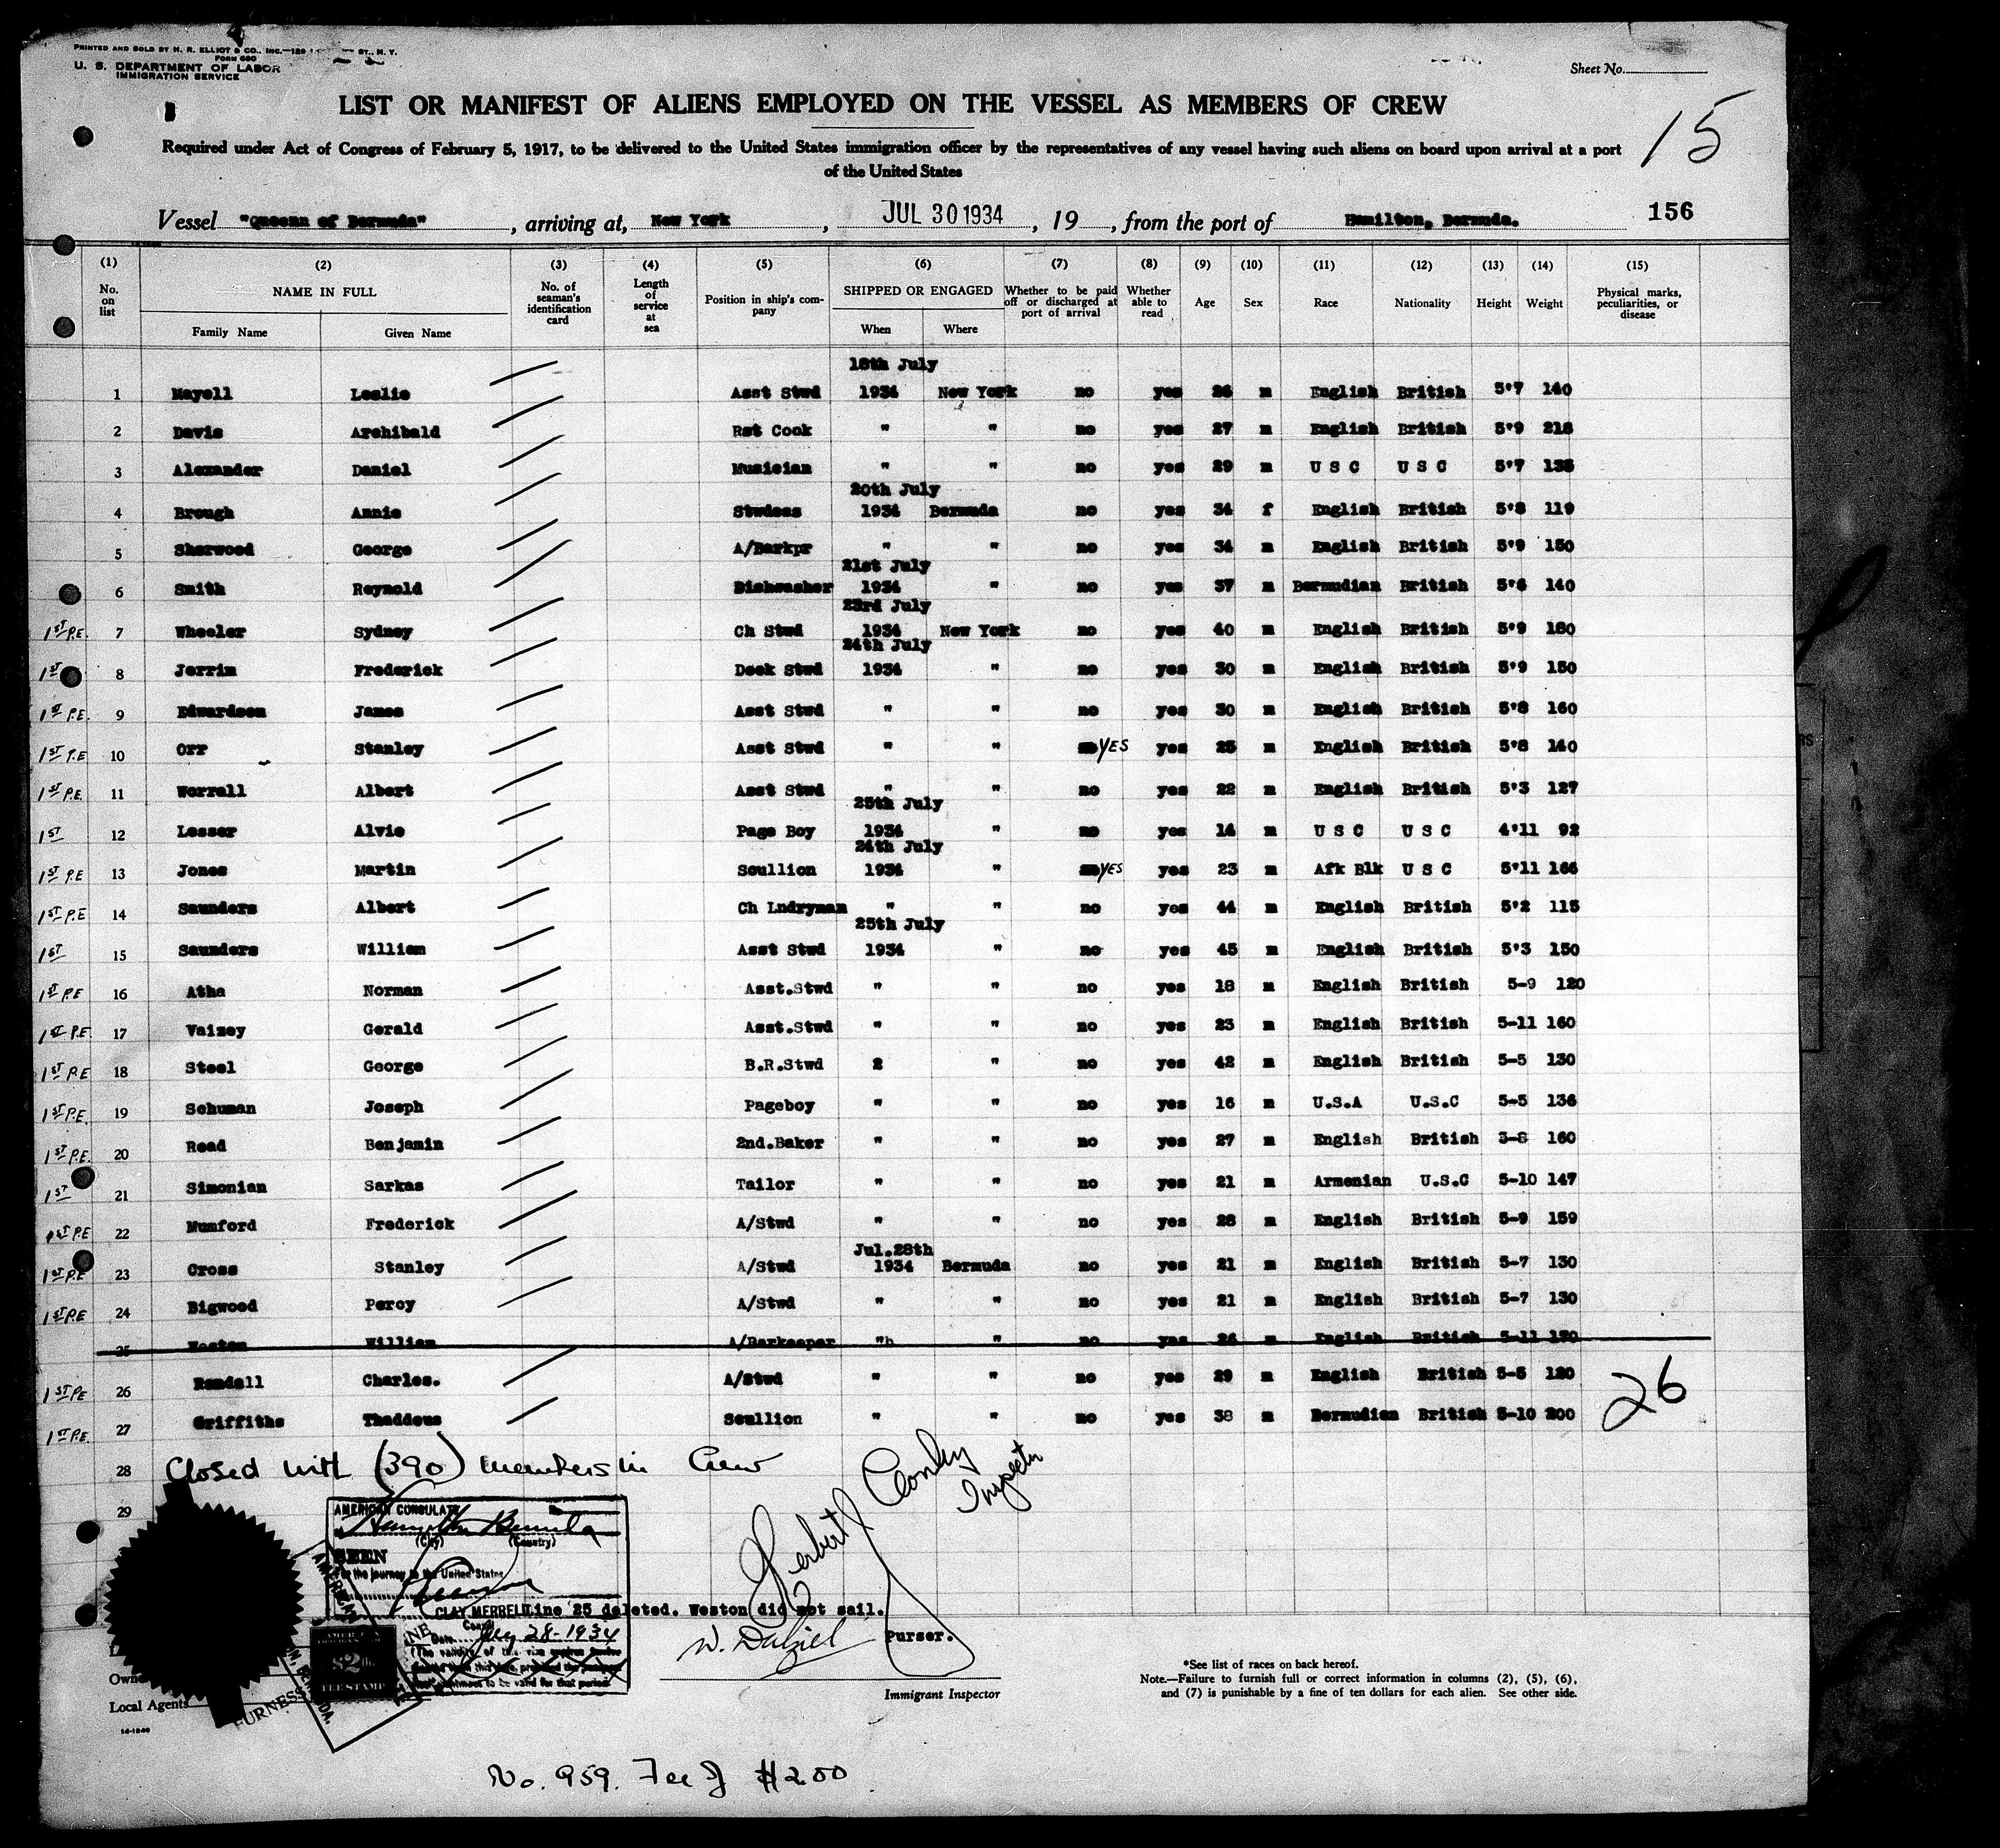 PRINTED AND SOLD BY H. R. ELLIOT & CO., INC.
FORM 680
U. S. DEPARTMENT OF LABOR
IMMIGRATION SERVICE
Sheet No.
LIST OR MANIFEST OF ALIENS EMPLOYED ON THE VESSEL AS MEMBERS OF CREW
15
Required under Act of Congress of February 5, 1917, to be delivered to the United States immigration officer by the representatives of any vessel having such aliens on board upon arrival at a port
of the United States
Vessel "Queenn of Bermuda", arriving at, New York, JUL 30 1934, 19, from the port of Hamilton, Bermuda. 156
(1) No. on list
(2) NAME IN FULL Family Name Given Name
(3) No. of seaman's identification card
(4) Length of service at sea
(5) Position in ship's company
(6) SHIPPED OR ENGAGED When Where
(7) Whether to be paid off or discharged at port of arrival
(8) Whether able to read
(9) Age
(10) Sex
(11) Race
(12) Nationality
(13) Height
(14) Weight
(15) Physical marks, peculiarities, or disease
18th July
1 Mayell Leslie Asst Stwd 1934 New York no yes 26 m English British 5'7 140
2 Davis Archibald Rst Cook " " no yes 27 m English British 5'9 218
3 Alexander Daniel Musician " " no yes 29 m U S C U S C 5'7 135
20th July
4 Brough Annie Stwdess 1934 Bermuda no yes 34 f English British 5'8 119
5 Sherwood George A/Barkpr " " no yes 34 m English British 5'9 150
21st July
6 Smith Reynold Dishwasher 1934 " no yes 37 m Bermudian British 5'6 140
23rd July
1ST P.E. 7 Wheeler Sydney Ch Stwd 1934 New York no yes 40 m English British 5'9 180
24th July
1ST 8 Jerrim Frederick Deck Stwd 1934 " no yes 30 m English British 5'9 150
1ST P.E. 9 Edwardson James Asst Stwd " " no yes 30 m English British 5'8 160
1ST P.E 10 Orr Stanley Asst Stwd " " YES yes 25 m English British 5'8 140
1ST P.E. 11 Worrall Albert Asst Stwd " " no yes 22 m English British 5'3 127
25th July
1ST 12 Lesser Alvie Page Boy 1934 " no yes 14 m U S C U S C 4'11 92
24th July
1ST P.E 13 Jones Martin Scullion 1934 " YES yes 23 m Afk Blk U S C 5'11 166
1ST P.E 14 Saunders Albert Ch Lndryman " " no yes 44 m English British 5'2 115
25th July
1ST 15 Saunders William Asst Stwd 1934 " no yes 45 m English British 5'3 150
1ST P.E 16 Atha Norman Asst.Stwd " " no yes 18 m English British 5-9 120
1ST P.E. 17 Vaizey Gerald Asst.Stwd " " no yes 23 m English British 5-11 160
1ST P.E 18 Steel George B.R.Stwd 2 " no yes 42 m English British 5-5 130
1ST P.E. 19 Schuman Joseph Pageboy " " no yes 16 m U.S.A U.S.C 5-5 136
1ST P.E. 20 Read Benjamin 2nd.Baker " " no yes 27 m English British 5-8 160
1ST 21 Simonian Sarkas Tailor " " no yes 21 m Armenian U.S.C 5-10 147
1ST P.E 22 Mumford Frederick A/Stwd " " no yes 28 m English British 5-9 159
Jul.28th
1ST P.E 23 Cross Stanley A/Stwd 1934 Bermuda no yes 21 m English British 5-7 130
1ST P.E 24 Bigwood Percy A/Stwd " " no yes 21 m English British 5-7 130
25 Weston William A/Barkeeper " " no yes 26 m English British 5-11 150
1ST P.E 26 Randall Charles. A/Stwd " " no yes 29 m English British 5-5 120
1ST P.E. 27 Griffiths Thaddeus Scullion " " no yes 38 m Bermudian British 5-10 200
26
28 Closed with (390) members in Crew
Herbert J Conley
Inspector
29
AMERICAN CONSULATE
Hamilton Bermuda
(City) (Country)
SEEN
For the journey to the United States
CLAY MERRELL
Line 25 deleted. Weston did not sail.
Date July 28-1934
W. Dalziel Purser.
$2
FEE STAMP
Local Agents
FURNESS
Immigrant Inspector
*See list of races on back hereof.
Note.—Failure to furnish full or correct information in columns (2), (5), (6),
and (7) is punishable by a fine of ten dollars for each alien. See other side.
14-1240
No. 959. Fee of $2.00